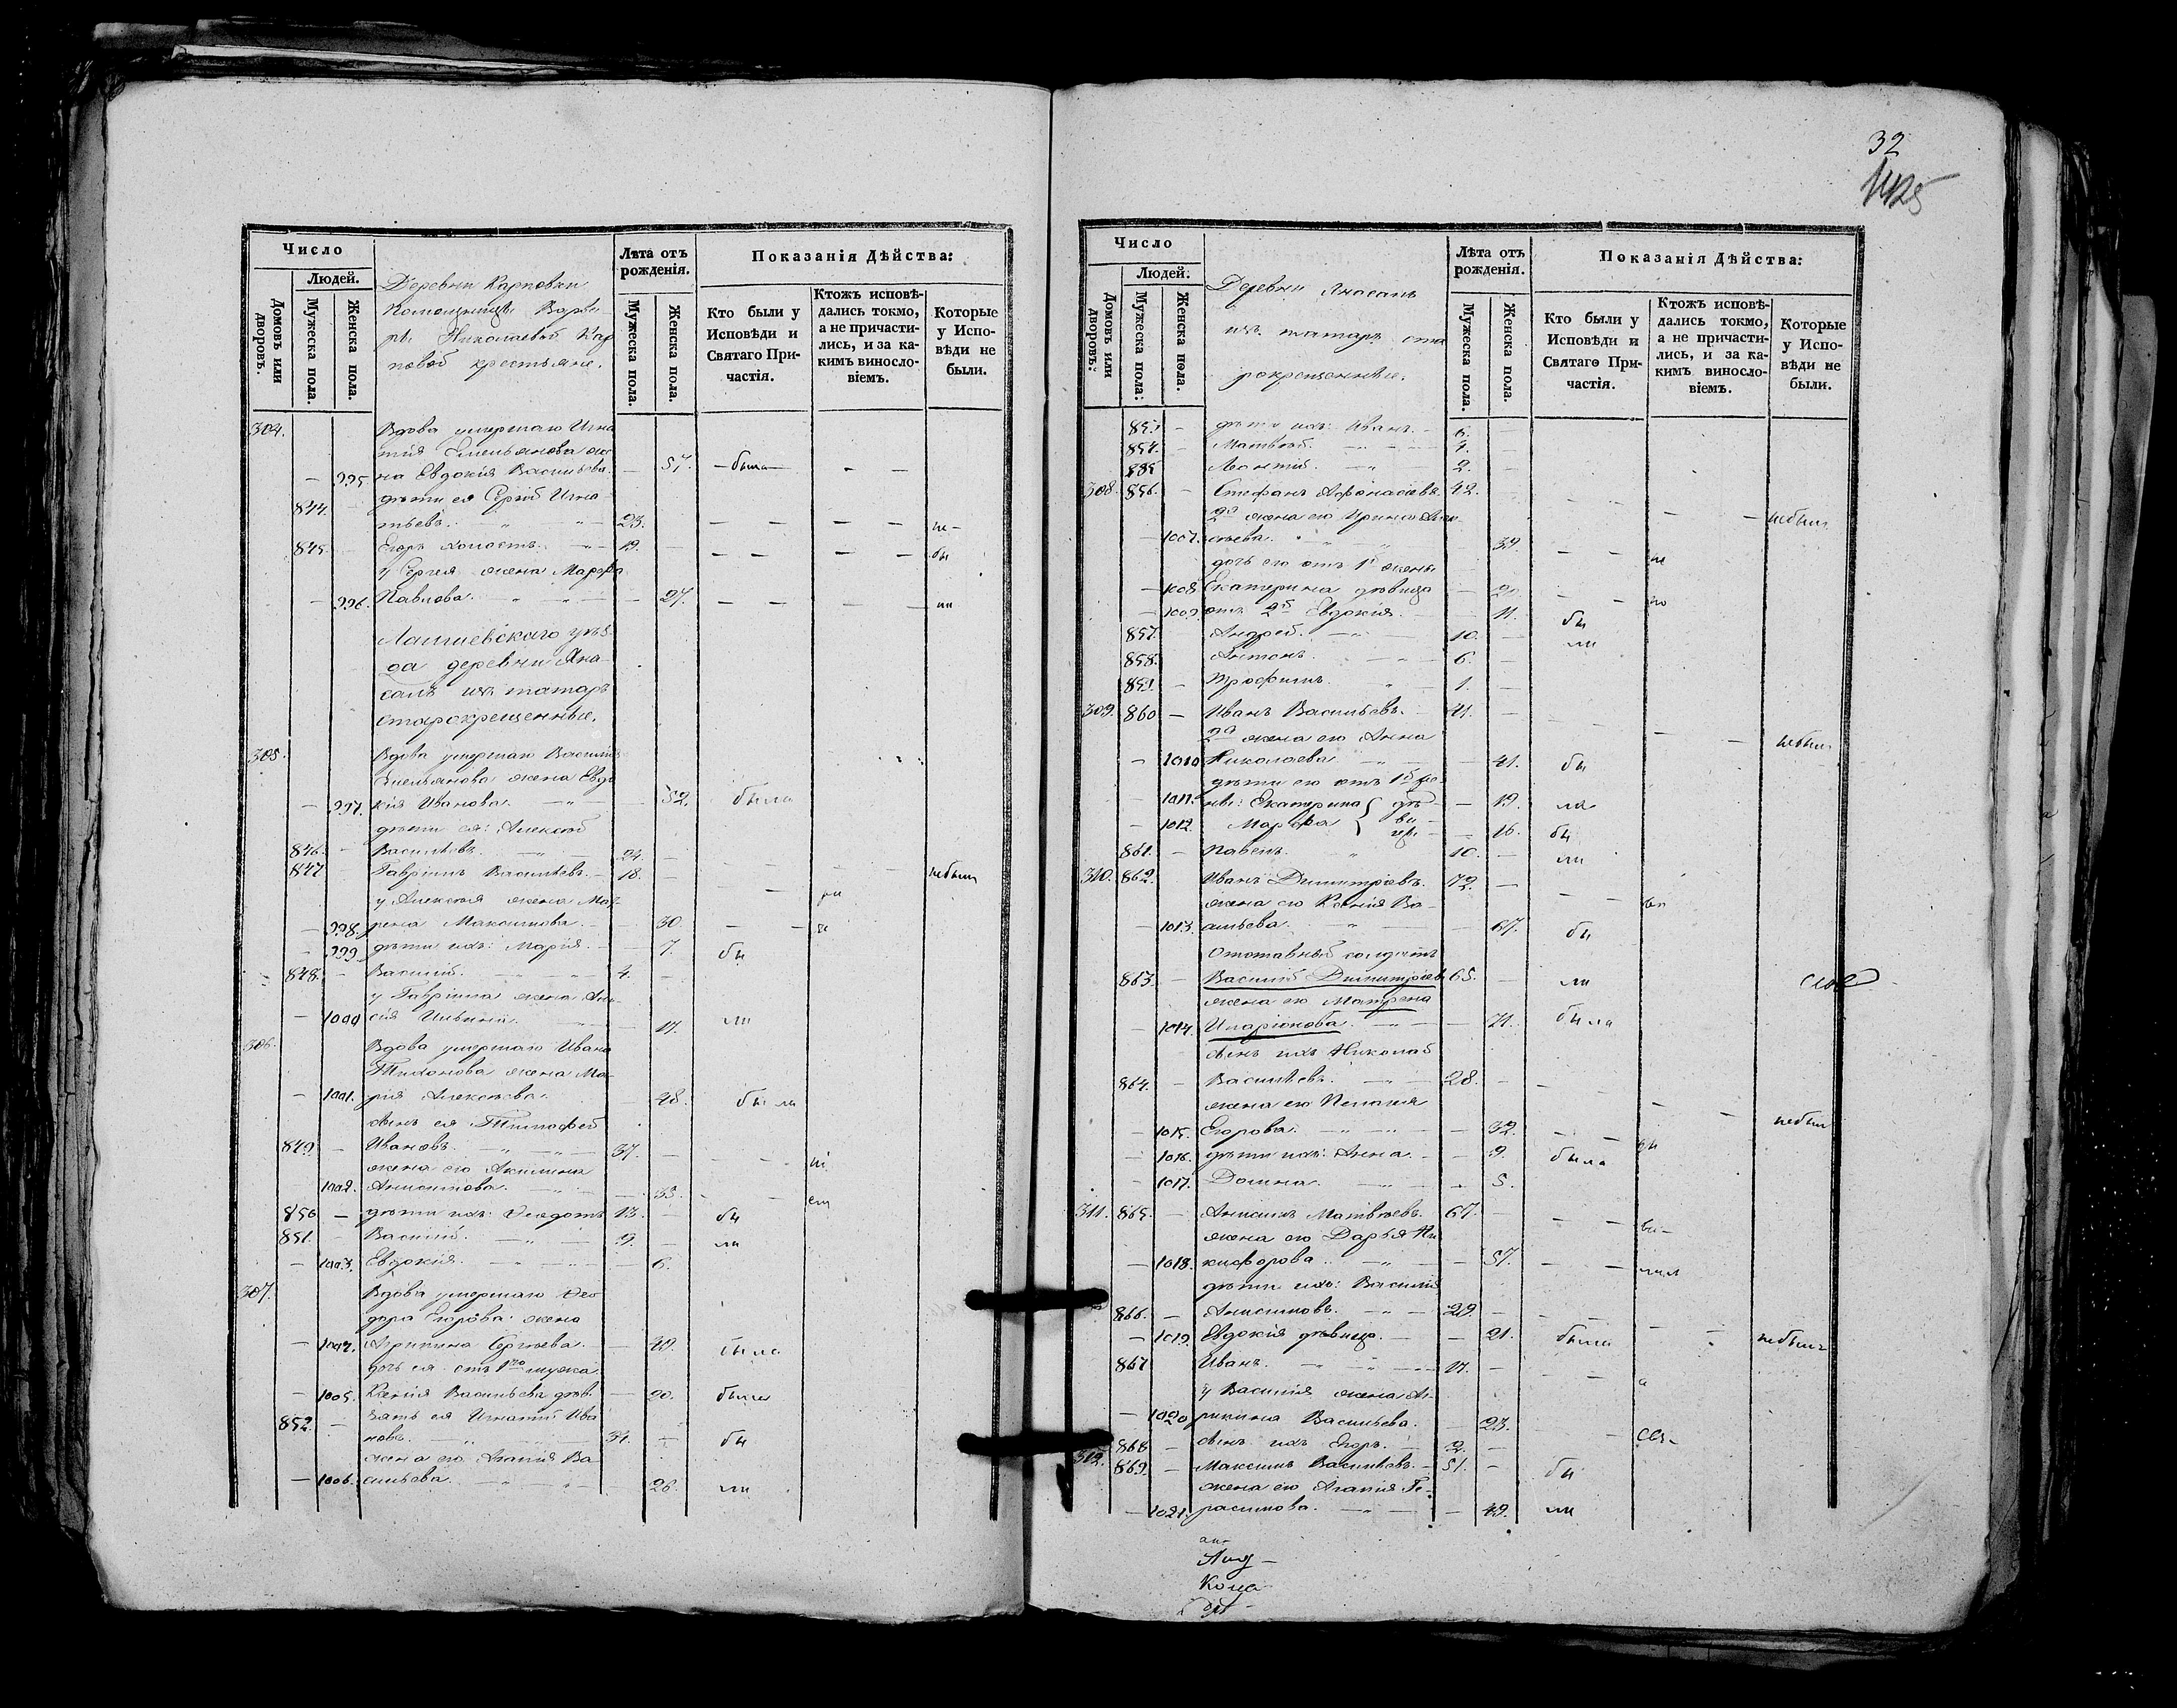 Число
Людей.
Домовъ или дворовъ.
Мужеска пола.
Женска пола.
Деревни Карповки
помещицы Варва-
ры Николаевой Кар
повой крестьяне.
Лѣта отъ рожденія.
Мужеска пола.
Женска пола.
Показанія Дѣйства:
Кто были у Исповѣди и Святаго При-частія.
Ктожъ исповѣ-дались токмо, а не причасти-лись, и за ка-кимъ винословіемъ.
Которые у Испо-вѣди не были.
304. Вдова умершаго Игна
тія Емельянова же
— 995. на Евдокія Васильева. — 57. — была — — —
844. — дѣти ея Сергѣй Игна
тьевъ. — „ „ — 23. — — — — не —
845. Егоръ холостъ. — „ — 19. — — — — — бы
у Сергея жена Марфа
— 996. Павлова. „ „ — — 27. — — — — ли
Лаишевскаго уѣз
да деревни Яна
салъ изъ татаръ
старокрещенные.
305. Вдова умершаго Василія
Емельянова жена Евдо
— 997. кія Иванова. — „ — — 52. была
дѣти ея: Алексѣй
846. — Васильевъ. — „ — 24. —
847 Гавріилъ Васильевъ. — 18. — небыли
у Алексѣя жена Мат
— 998. рена Максимова. — 30. — —
— 999. дѣти ихъ: Марія. — — 7. бы
848. — Василій. — „ „ — 4. —
у Гавріила жена Ана
— 1000 сія Ильина. — — 17. ли
306. Вдова умершаго Ивана
Тихонова жена Ма-
— 1001. рія Алексѣева. — 48. была
сынъ ея Тимофей
849. — Ивановъ. — „ „ — 37. —
жена его Акилина
1002. Анисимова. — „ — — 33. — —
850 — дѣти ихъ: Ѳеодотъ 13. — бы
851. — Василій. — „ — 9. — ли
— 1003. Евдокія. — „ „ — — 6.
307. Вдова умершаго Ѳео
дора Егорова жена
— 1004. Агрипина Сергѣева. — 49. была
дочь ея отъ 1го мужа
— 1005. Ксенія Васильева дѣв. — 20. была
852. — зять ея Игнатій Ива
новъ. — „ — 31. — бы
жена его Агапія Ва
— 1006. сильева. — „ — „ — 26. ли
32
1425
Число
Людей.
Домовъ или дворовъ.
Мужеска пола.
Женска пола.
Деревни Янасалъ
изъ татаръ ста
рокрещенные.
Лѣта отъ рожденія.
Мужеска пола.
Женска пола.
Показанія Дѣйства:
Кто были у Исповѣди и Святаго При-частія.
Ктожъ исповѣ-дались токмо, а не причасти-лись, и за ка-кимъ винословіемъ.
Которые у Испо-вѣди не были.
853 — дѣти ихъ: Иванъ. — 6. —
854. — Матвѣй. — 4. —
885 Леонтій. — „ 2. —
308. 856. — Стефанъ Афонасіевъ. 42. — — — небыли
2я жена его Ирина Алек-
— 1007. сѣева. „ — 39. — —
дочь его отъ 1й жены
— 1008 Екатерина дѣвица — 20 — —
— 1009 отъ 2й Евдокія. — — 11. бы
857. Андрей. — „ — 10. — ли
858. Антонъ. — „ — 6. —
859. — Трофимъ. „ — 1. —
309. 860 — Иванъ Васильевъ. — 41. — — — небыли
2я жена его Анна
— 1010 Николаева — „ — 41. бы
дѣти его отъ 1й же
— 1011. ны: Екатерина { дѣ — — 19. ла
— 1012. Марфа { ви- цы — — 16. бы
861. — Павелъ. „ 10. — ли
310. 862. Иванъ Димитріевъ. 72. — — —
жена его Ксенія Ва-
— 1013. сильева. — „ — — 67. бы
Отставный солдатъ
863. — Василій Димитріевъ 65. — ли
жена его Матрена
— 1014. Иларіонова. — „ — — 71. была
сынъ ихъ Николай
864. — Васильевъ. — „ — 28. — — — небыли
жена его Пелагея
— 1015. Егорова. — „ „ — — 32. — —
— 1016. дѣти ихъ: Анна. — — 9. была
— 1017. Домна. — „ — 5.
311. 865. — Анисимъ Матвѣевъ. 67. — — —
жена его Дарья Ни
— 1018. кифорова. — „ — — 57. — —
дѣти ихъ: Василій
866. — Анисимовъ. — „ — 29. — — — небылъ
— 1019. Евдокія дѣвица. — — 21. была
867 Иванъ. — „ — 17. — — —
у Василія жена Аг-
— 1020 рипина Васильева. — 23. —
868 — сынъ ихъ Егоръ. — 2. —
312. 869. — Максимъ Васильевъ. — 51. — бы
жена его Агапія Ге-
— 1021. расимова. — „ — — 49. ли